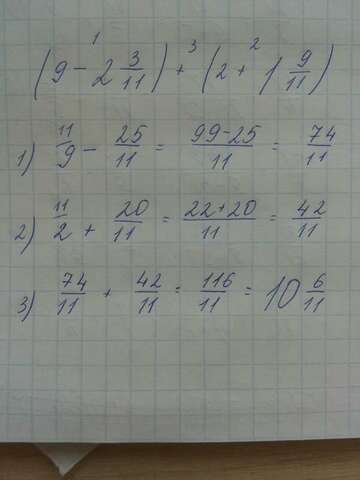 1 3 2
(9 - 2 3/11) + (2 + 1 9/11)
1) 11/9 - 25/11 = 99-25/11 = 74/11
2) 11/2 + 20/11 = 22+20/11 = 42/11
3) 74/11 + 42/11 = 116/11 = 10 6/11